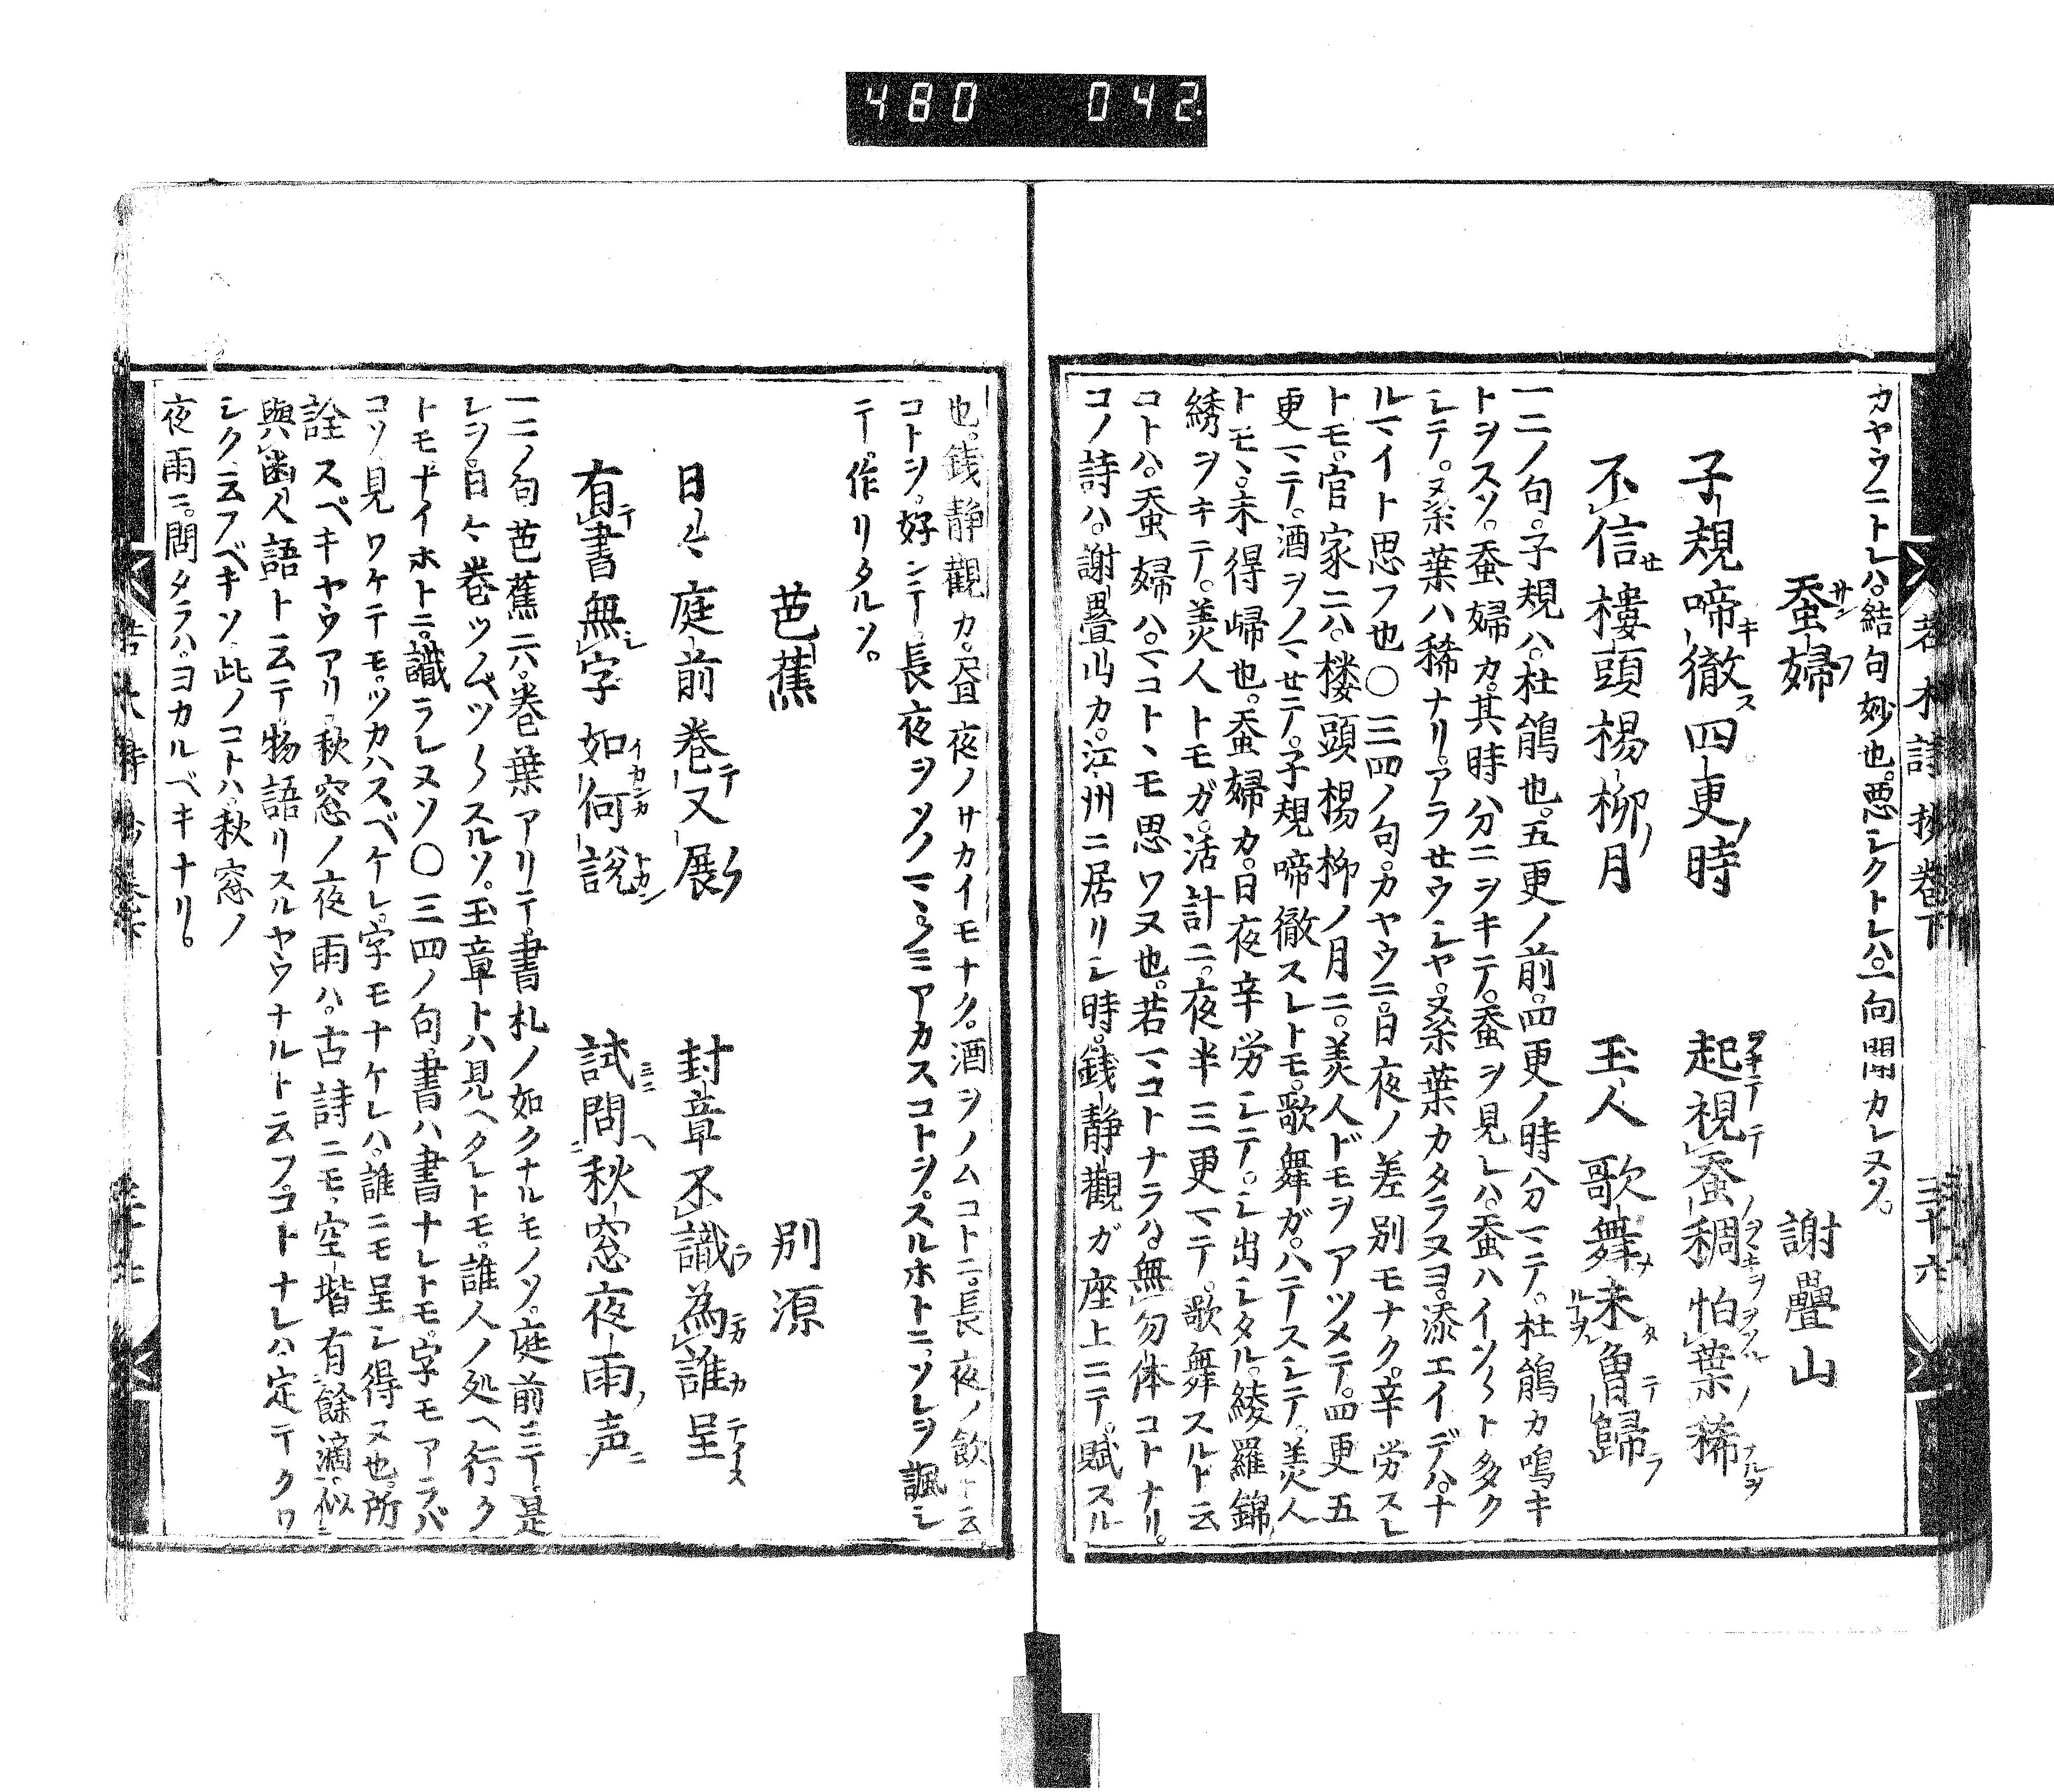 480 042
若木詩抄巻下 三十六
カヤウニトレハ。結句妙也。悪シクトレハ。一向聞カレヌソ。
蚕婦 謝疊山
子規啼徹四更時 起視蚕稠怕葉稀
不信樓頭楊柳月 玉人歌舞未曾歸
一二ノ句。子規ハ。杜鵑也。五更ノ前。四更ノ時分マテ。杜鵑カ鳴キ
トヲスソ。蚕婦カ。其時分ニヲキテ。蚕ヲ見レハ。蚕ハイソ〱ト多ク
シテ。又桑葉ハ稀ナリ。アラせウシヤ。桑葉カタラヌヨ。添エイデハナ
ルマイト思フ也〇三四ノ句。カヤウニ。日夜ノ差別モナク。辛労スレ
トモ。官家ニハ。楼頭楊柳ノ月ニ。美人ドモヲアツメテ。四更五
更マテ。酒ヲノマせテ。子規啼徹スレトモ。歌舞ガ。ハテースシテ。美人
トモヽ。未得帰也。蚕婦カ。日夜辛労シテ。シ出シタル。綾羅錦
綉ヲキテ。美人トモガ。活計ニ。夜半三更マテ。歌舞スルト云
コトハ。蚕婦ハ。マコトヽモ思ワヌ也。若マコトナラハ。無勿体コトナリ。
コノ詩ハ。謝畳山カ。江州ニ居リシ時。銭静觀ガ座上ニテ。賦スル
也。銭静觀カ。昼夜ノサカイモナク。酒ヲノムコトニ。長夜ノ飲ト云
コトヲ。好ンテ。長夜ヲツクマ。ノミアカスコトヲ。スルホトニ。ソレヲ諷シ
テ作リタルソ。
芭蕉 別源
日々庭前巻又展 封章不識為誰呈
有書無字如何説 試問秋窓夜雨声
一二ノ句芭蕉ニハ。巻葉アリテ。書札ノ如クナルモノソ。庭前ニテ。是
レソ。日々巻ツノベツ〱スルソ。玉章トハ見ヘタレトモ。誰人ノ処ヘ行ク
トモナイホトニ。識ラレヌソ〇三四ノ句。書ハ書ナレトモ。字モアラバ
コソ見ワケテモ。ツカハスベケレ。字モナケレハ。誰ニモ呈シ得ヌ也。所
詮スベキヤウアリ。秋窓ノ夜雨ハ。古詩ニモ。空堦有餘滴。似
與幽人語ト云テ。物語リスルヤウナルト云フ。コトナレハ。定テクワ
シク。云フベキソ。此ノコトハ。秋窓ノ
夜雨ニ。問タラハ。ヨカルベキナリ。